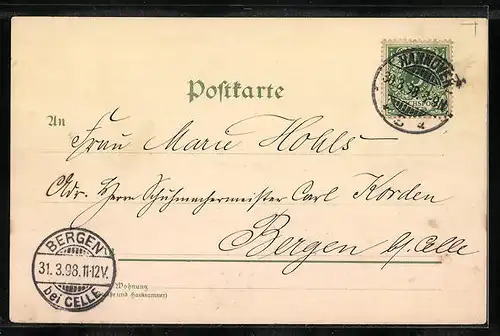 HANNOVER
30.3.98.
Postkarte
An
Frau Marie Hohls
Adr. Herrn Schuhmachermeister Carl Korden
Bergen b/Celle
BERGEN
31.3.98.11-12V.
bei CELLE
Wohnung
und Hausnummer)